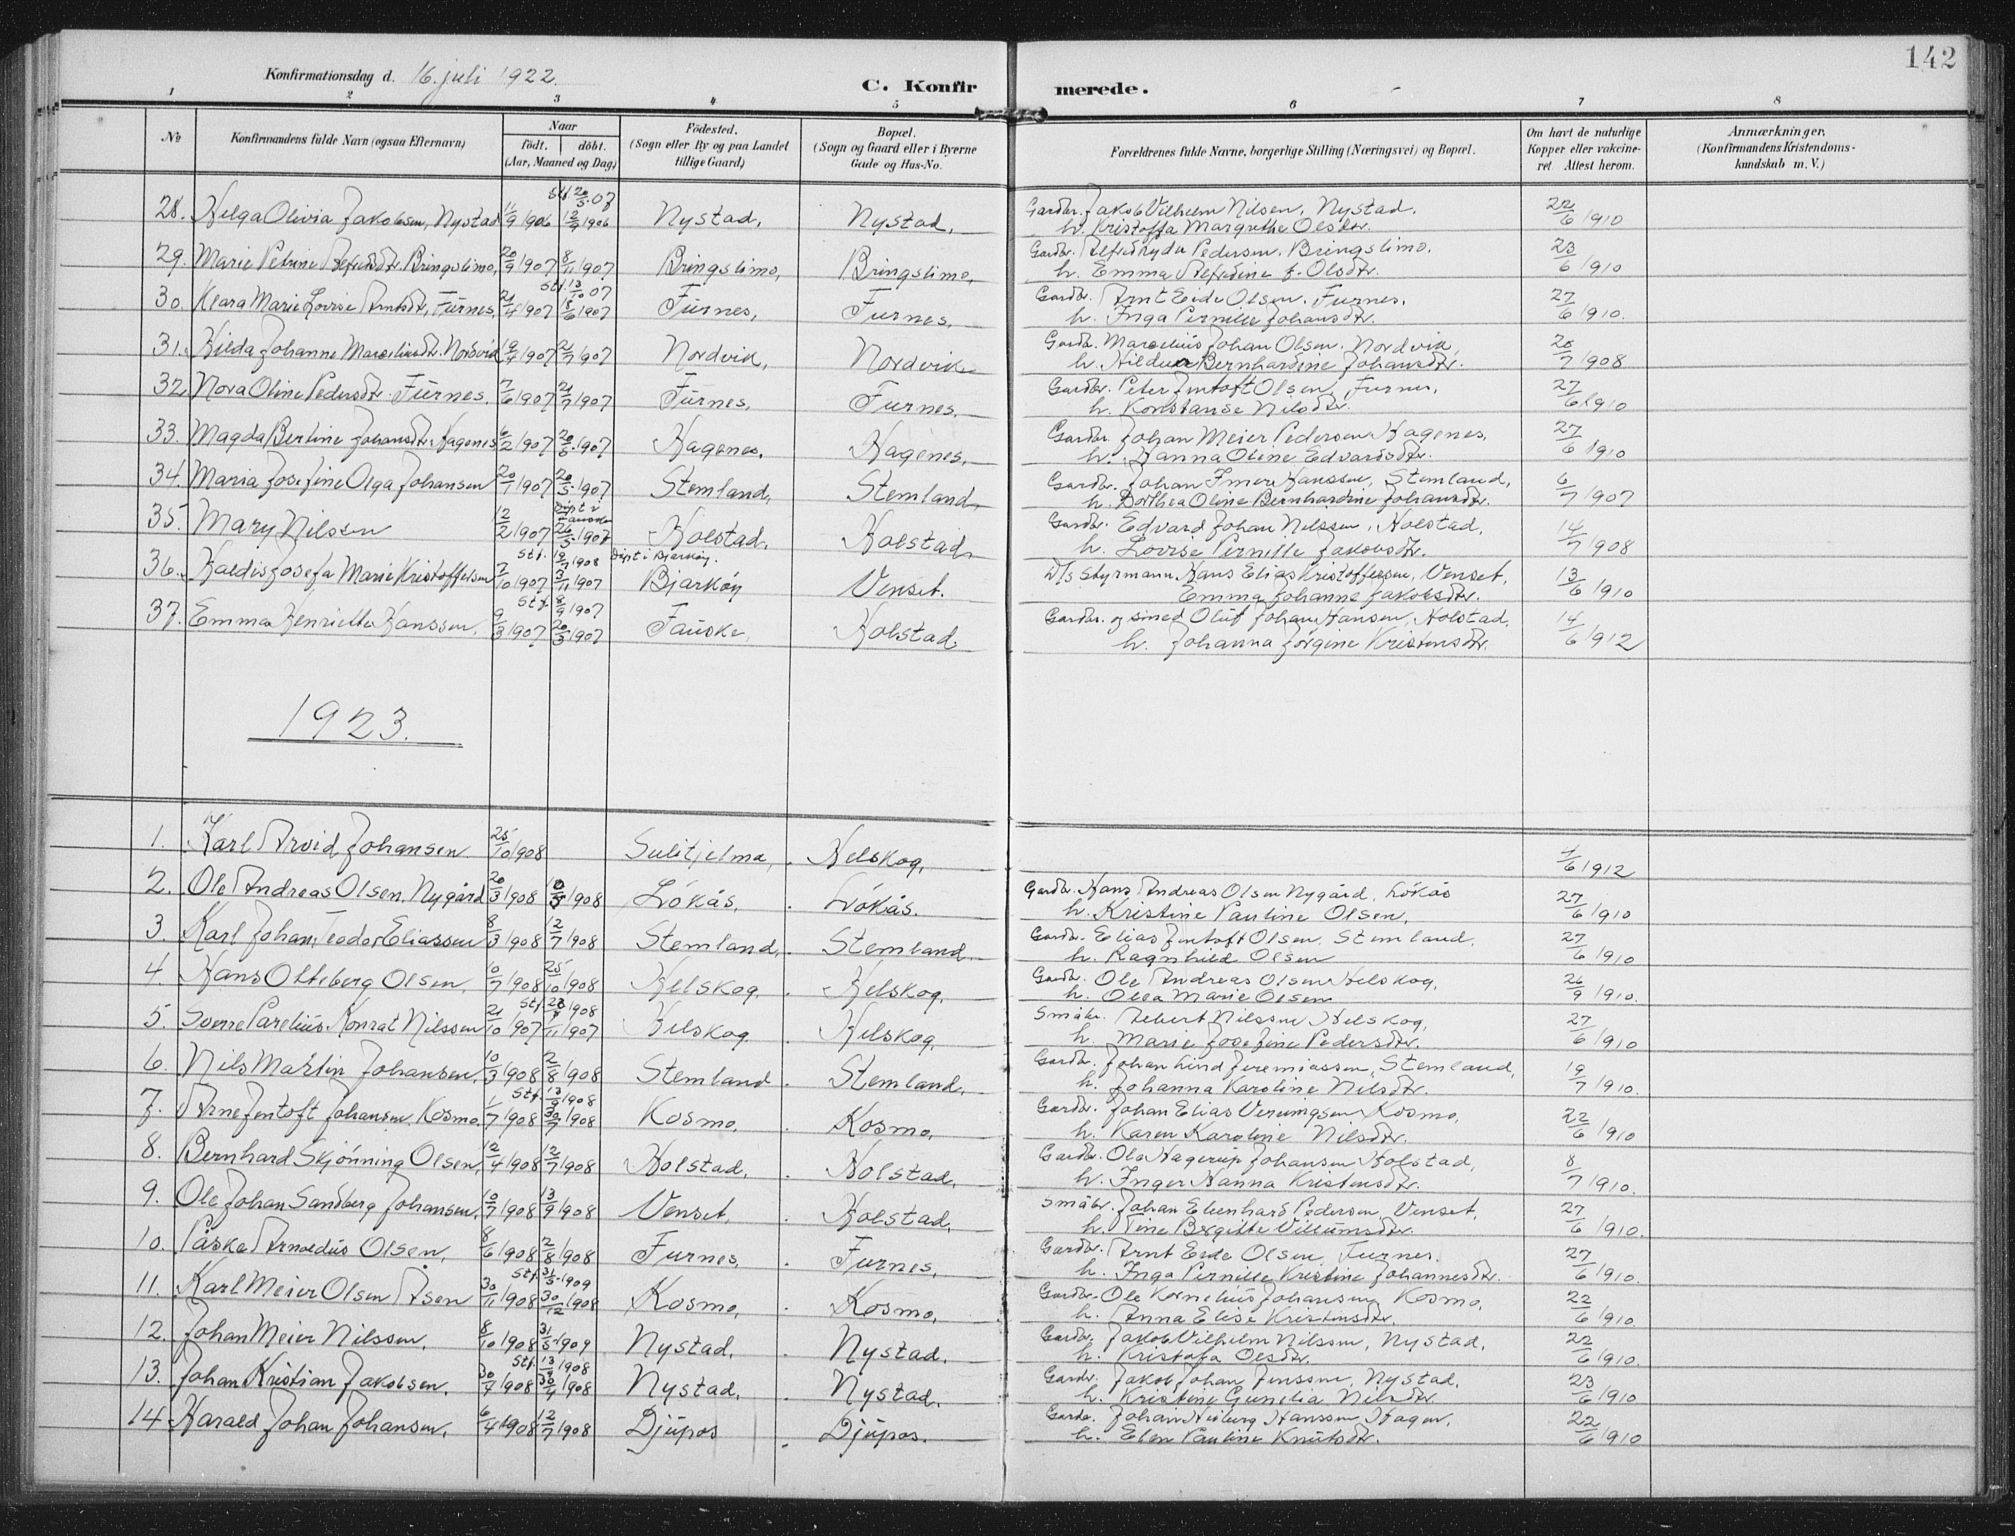 142
Konfirmationsdag d. 16. juli 1922.
C. Konfirmerede.
1 2 3 4 5 6 7 8
No
Konfirmandens fulde Navn (ogsaa Efternavn)
Naar
født. døbt.
(Aar, Maaned og Dag)
Fødested.
(Sogn eller By og paa Landet
tillige Gaard)
Bopæl.
(Sogn og Gaard eller i Byerne
Gade og Hus-No.
Forældrenes fulde Navne, borgerlige Stilling (Næringsvei) og Bopæl.
Om havt de naturlige
Kopper eller vaccine-
ret. Attest herom.
Anmærkninger.
(Konfirmandens Kristendoms-
kundskab m. V.)
28. Helga Olivia Jakobsen, Nystad 11/9 1906 Nystad, Nystad, Gardbr. Jakob Vilhelm Nilsen, Nystad. 22/6 1910
h. Kristoffa Margrethe Olsdtr.
29. Marie Petrine Alfredsdtr. Bringslimo, 20/9 1907 8/11 1907 Bringslimo, Bringslimo, Gardbr. Alfred Pedersen, Bringslimo. 23/6 1910
h. Emma Alfredine f. Olsdtr.
30. Klara Marie Lovise Arntsdtr, Furnes, 21/4 1907 Furnes, Furnes, Gardbr. Arnt Eide Olsen, Furnes, 27/6 1910.
h. Inga Pernille Johansdtr.
31. Hilda Johanne Marseliusdtr. Nordvik 21/7 1907 Nordvik, Nordvik Gardbr. Marselius Johan Olsen, Nordvik, 20/7 1908
h. Bernhardine Johansdtr.
32. Nora Oline Pedersdtr. Furnes, 7/6 1907 21/7 1907 Furnes, Furnes. Gardbr. Peter Jentoft Olsen, Furnes, 27/6 1910
h. Konstanse Nilsdtr.
33. Magda Berline Johansdtr. Hagenes 6/2 1907 20/5 1907 Hagenes. Hagenes, Gardbr. Johan Meier Pedersen, Hagenes, 27/6 1910
h. Hanna Oline Edvardsdtr.
34. Maria Josefine Olga Johansen 20/1 1907 20/5 1907 Stemland, Stemland, Gardbr. Johan Hanssen, Stemland, 6/7 1907
h. Dorthea Oline Bernhardine Johansdtr.
35. Mary Nilsen 12/2 1907 Døpt i Fauske 26/5 1907 Holstad, Holstad, Gardbr. Edvard Johan Nilssen, Holstad, 14/7 1908
h. Lovise Pernille Jakobsdtr.
36. Haldis Josefa Marie Kristoffersen 7/10 1907 3/11 1907 Døpt i Bjarkøy. Bjarkøy Venset. D/s Styrmann Hans Elias Kristoffersen, Venset, 13/6 1910
Emma Johanne Jakobsdtr.
37. Emma Henriette Hanssen, 9/3 1907 stf. 8/9 1907 20/5 1907 Fauske, Holstad Gardbr. og smed Oluf Johan Hansen, Holstad, 14/6 1912
h. Johanna Jørgine Kristensdtr.
1923.
1. Karl Arvid Johansen 25/10 1908 Sulitjelma, Helskog, 1/6 1912
2. Ole Andreas Olsen, Nygård 20/3 1908 Løkås, Løkås. Gardbr. Hans Andreas Olsen Nygård, Løkås 27/6 1910
h. Kristine Pauline Olsen,
3. Karl Johan Teodor Eliassen 8/3 1908 12/7 1908 Stemland, Stemland. Gardbr. Elias Jentoft Olsen, Stemland, 27/6 1910
h. Ragnhild Olsen
4. Hans Olteberg Olsen, 10/7 1908 25/10 1908 Helskog. Helskog, Gardbr. Ole Andreas Olsen Helskog, 26/9 1910.
h. Olea Marie Olsen
5. Sverre Parelius Konrat Nilssen 21/10 1907 Helskog Helskog, Småbr. Albert Nilssen, Helskog, 27/6 1910
h. Marie Josefine Pedersdtr.
6. Nils Martin Johansen. 10/3 1908 2/8 1908 Stemland. Stemland, Gardbr. Johan Lind Jeremiassen, Stemland, 19/7 1910.
h. Johanna Karoline Nilsdtr.
7. Arne Jentoft Johansen Kosmo. 1/7 1908 stf. 13/9 1908 30/7 1908 Kosmo. Kosmo, Gardbr. Johan Elias Kosmo, 22/6 1910
h. Karen Karoline Nilsdtr.
8. Bernhard Skjønning Olsen, 2/4 1908 12/7 1908 Holstad, Holstad, Gardbr. Ole Hagerup Johansen Holstad, 8/7 1910.
h. Inger Hanna Kristensdtr.
9. Ole Johan Sandberg Johansen, 10/7 1908 13/9 1908 Venset, Holstad, Småbr. Johan Edenhard Pedersen, Venset, 27/6 1910.
h. Tine Birgitte Villumsdtr.
10. Påske Arnoldus Olsen, 8/6 1908 2/8 1908 Furnes, Furnes, Gardbr. Arnt Eide Olsen, Furnes. 27/6 1910.
h. Inga Pernille Kristine Johannesdtr.
11. Karl Meier Olsen Åsen 30/11 1908 stf. 31/5 1909 30/12 1908 Kosmo, Kosmo, Gardbr. Ole Kornelius Johansen, Kosmo, 22/6 1910.
h. Anna Elise Kristensdtr.
12. Johan Meier Nilssen, 8/10 1908 31/5 1909 Nystad, Nystad, Gardbr. Jakob Vilhelm Nilssen, Nystad, 22/6 1910.
h. Kristofa Olsdtr.
13. Johan Kristian Jakobsen, 30/7 1908 Nystad, Nystad. Gardbr. Jakob Johan Jenssen, Nystad, 23/6 1910
h. Kristine Gunelia Nilsdtr.
14 Harald Johan Johansen, 6/4 1908 12/7 1908 Djupos Djupos. Gardbr. Johan Hanssen Hagen, 22/6 1910
h. Elen Pauline Knutsdtr.